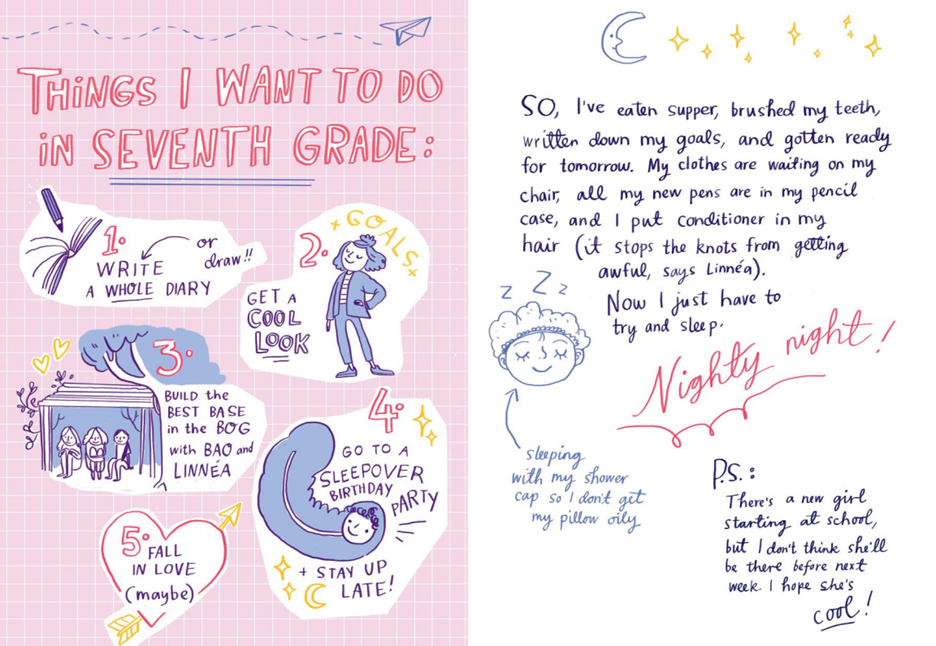 THINGS I WANT TO DO
IN SEVENTH GRADE:
1. WRITE
A WHOLE DIARY
or
draw!!
2. GOALS
GET A
COOL
LOOK
3.
BUILD the
BEST BASE
in the BOG
with BAO and
LINNÉA
4.
GO TO A
SLEEPOVER
BIRTHDAY
PARTY
+ STAY UP
LATE!
5. FALL
IN LOVE
(maybe)
SO, I've eaten supper, brushed my teeth,
written down my goals, and gotten ready
for tomorrow. My clothes are waiting on my
chair, all my new pens are in my pencil
case, and I put conditioner in my
hair (it stops the knots from getting
awful, says Linnéa).
Now I just have to
try and sleep.
Z Z Z
Nighty night!
sleeping
with my shower
cap so I don't get
my pillow oily
P.S.:
There's a new girl
starting at school,
but I don't think she'll
be there before next
week. I hope she's
cool!